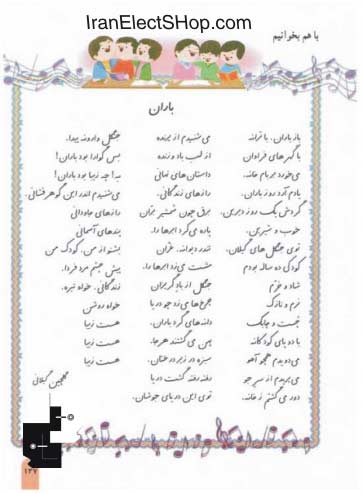 IranElectSHop.com
با هم بخوانیم
باران
باز باران، با ترانه
با گهرهای فراوان
می‌خورد بر بام خانه
یادم آرد روز باران.
گردش یک روز دیرین.
خوب و شیرین.
توی جنگل‌های گیلان.
کودکی ده ساله بودم
شاد و خرّم
نرم و نازک
چست و چابک
با دو پای کودکانه
می‌دویدم همچو آهو
می‌پریدم از سر جو
دور می‌گشتم ز خانه.
می‌شنیدم از پرنده
از لب باد وزنده
داستان‌های نهانی
رازهای زندگانی.
برق چون شمشیر برّان
پاره می‌کرد ابرها را.
تندر دیوانه، غرّان
مشت می‌زد ابرها را.
جنگل از باد گریزان
چرخ‌ها می‌زد چو دریا
دانه‌های گرد باران.
پهن می‌گشتند هر جا.
سبزه در زیر درختان.
رفته رفته گشت دریا
توی این دریای جوشان.
جنگل وارونه پیدا.
بس گوارا بود باران!
به! چه زیبا بود باران!
می‌شنیدم اندر این گوهرفشانی.
رازهای جاودانی
پندهای آسمانی
بشنو از من، کودک من
پیش چشم مرد فردا.
زندگانی، خواه تیره،
خواه روشن
هست زیبا
هست زیبا
هست زیبا
گلچین گیلانی